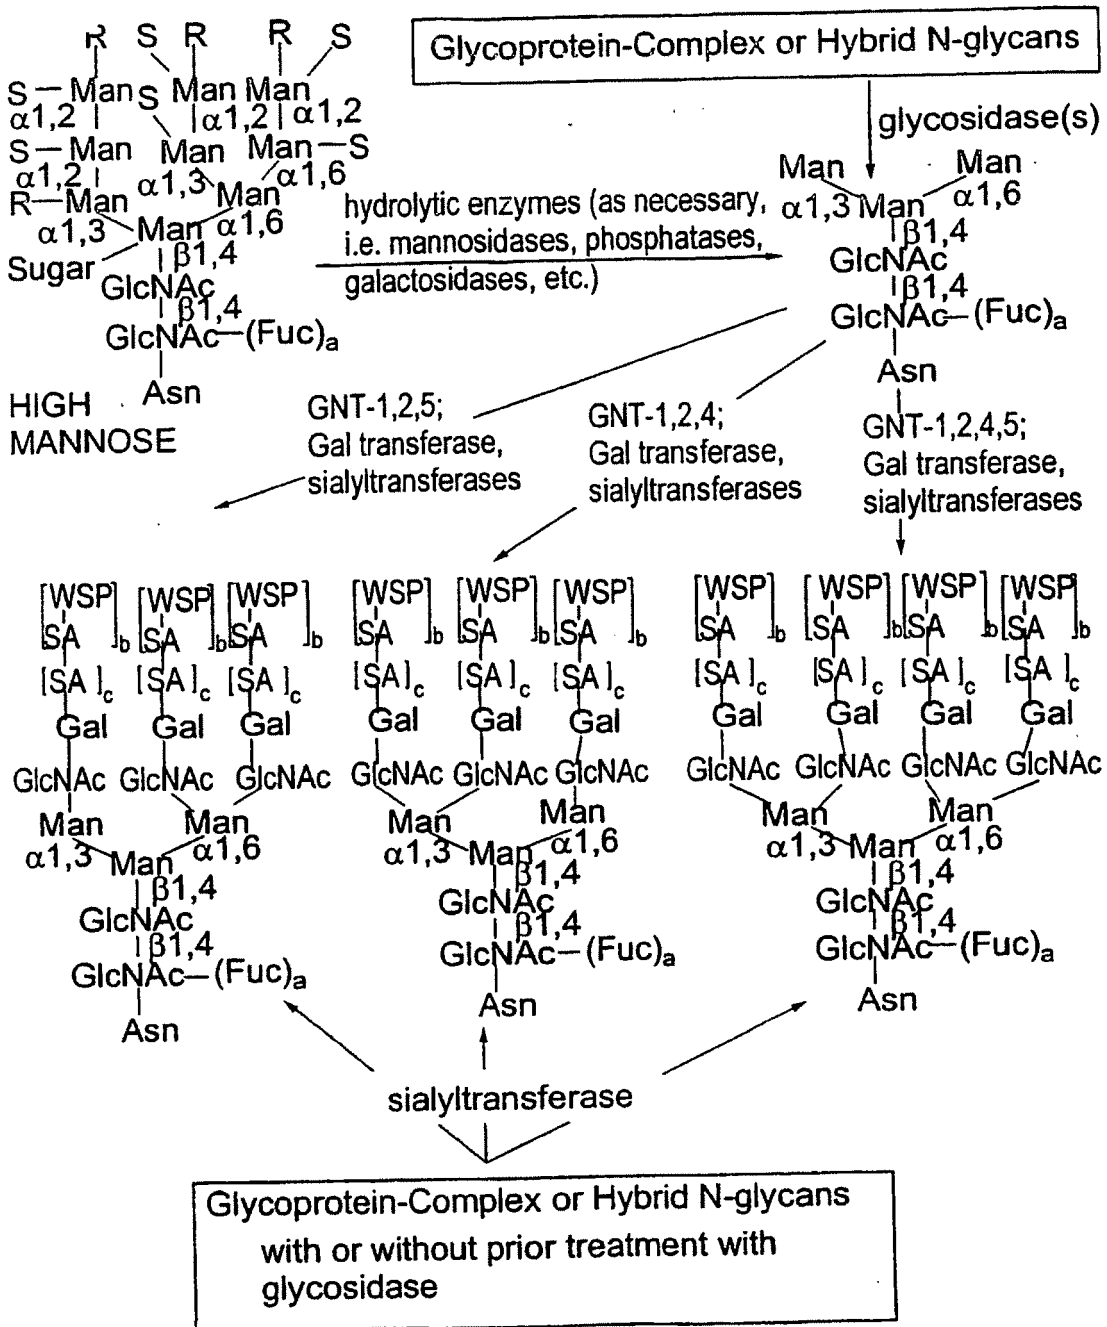 R S R R S
Glycoprotein-Complex or Hybrid N-glycans
S – Man S Man Man
α1,2 α1,2 α1,2
glycosidase(s)
S – Man Man Man – S
α1,2 α1,3 α1,6
R – Man Man
α1,3 Man α1,6
Sugar β1,4
GlcNAc
β1,4
GlcNAc – (Fuc)a
Asn
HIGH
MANNOSE
hydrolytic enzymes (as necessary,
i.e. mannosidases, phosphatases,
galactosidases, etc.)
Man Man
α1,3 Man α1,6
β1,4
GlcNAc
β1,4
GlcNAc – (Fuc)a
Asn
GNT-1,2,5;
Gal transferase,
sialyltransferases
GNT-1,2,4;
Gal transferase,
sialyltransferases
GNT-1,2,4,5;
Gal transferase,
sialyltransferases
[WSP [WSP [WSP
SA]b SA]b SA]b
[SA]c [SA]c [SA]c
Gal Gal Gal
GlcNAc GlcNAc GlcNAc
Man Man
α1,3 Man α1,6
β1,4
GlcNAc
β1,4
GlcNAc – (Fuc)a
Asn
[WSP [WSP [WSP
SA]b SA]b SA]b
[SA]c [SA]c [SA]c
Gal Gal Gal
GlcNAc GlcNAc GlcNAc
Man Man
α1,3 Man α1,6
β1,4
GlcNAc
β1,4
GlcNAc – (Fuc)a
Asn
[WSP [WSP [WSP [WSP
SA]b SA]b SA]b SA]b
[SA]c [SA]c [SA]c [SA]c
Gal Gal Gal Gal
GlcNAc GlcNAc GlcNAc GlcNAc
Man Man
α1,3 Man α1,6
β1,4
GlcNAc
β1,4
GlcNAc – (Fuc)a
Asn
sialyltransferase
Glycoprotein-Complex or Hybrid N-glycans
with or without prior treatment with
glycosidase